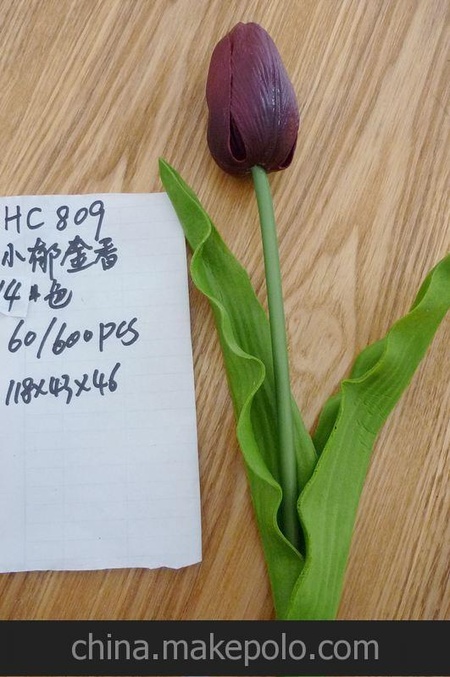 HC 809
小郁金香
14#色
60/600pcs
118x43x46
china.makepolo.com